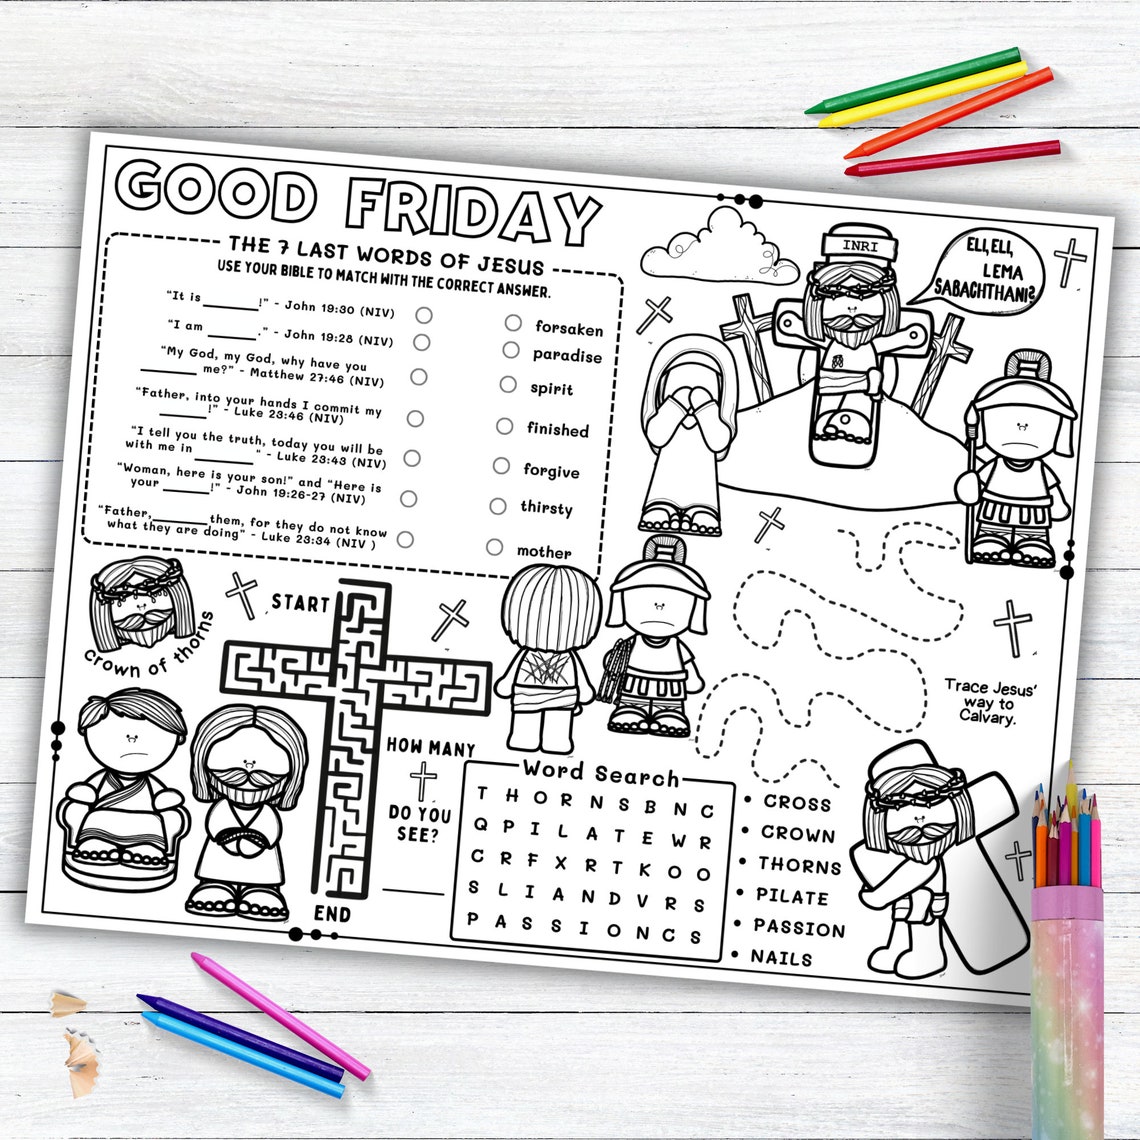 GOOD FRIDAY
THE 7 LAST WORDS OF JESUS
USE YOUR BIBLE TO MATCH WITH THE CORRECT ANSWER.
"It is ______!" - John 19:30 (NIV)
"I am ______." - John 19:28 (NIV)
"My God, my God, why have you
______ me?" - Matthew 27:46 (NIV)
"Father, into your hands I commit my
______!" - Luke 23:46 (NIV)
"I tell you the truth, today you will be
with me in ______" - Luke 23:43 (NIV)
"Woman, here is your son!" and "Here is
your ______!" - John 19:26-27 (NIV)
"Father,______them, for they do not know
what they are doing" - Luke 23:34 (NIV )
forsaken
paradise
spirit
finished
forgive
thirsty
mother
INRI
ELI, ELI,
LEMA
SABACHTHANI?
crown of thorns
START
END
HOW MANY
DO YOU
SEE?
Trace Jesus'
way to
Calvary.
Word Search
T H O R N S B N C
Q P I L A T E W R
C R F X R T K O O
S L I A N D V R S
P A S S I O N C S
• CROSS
• CROWN
• THORNS
• PILATE
• PASSION
• NAILS